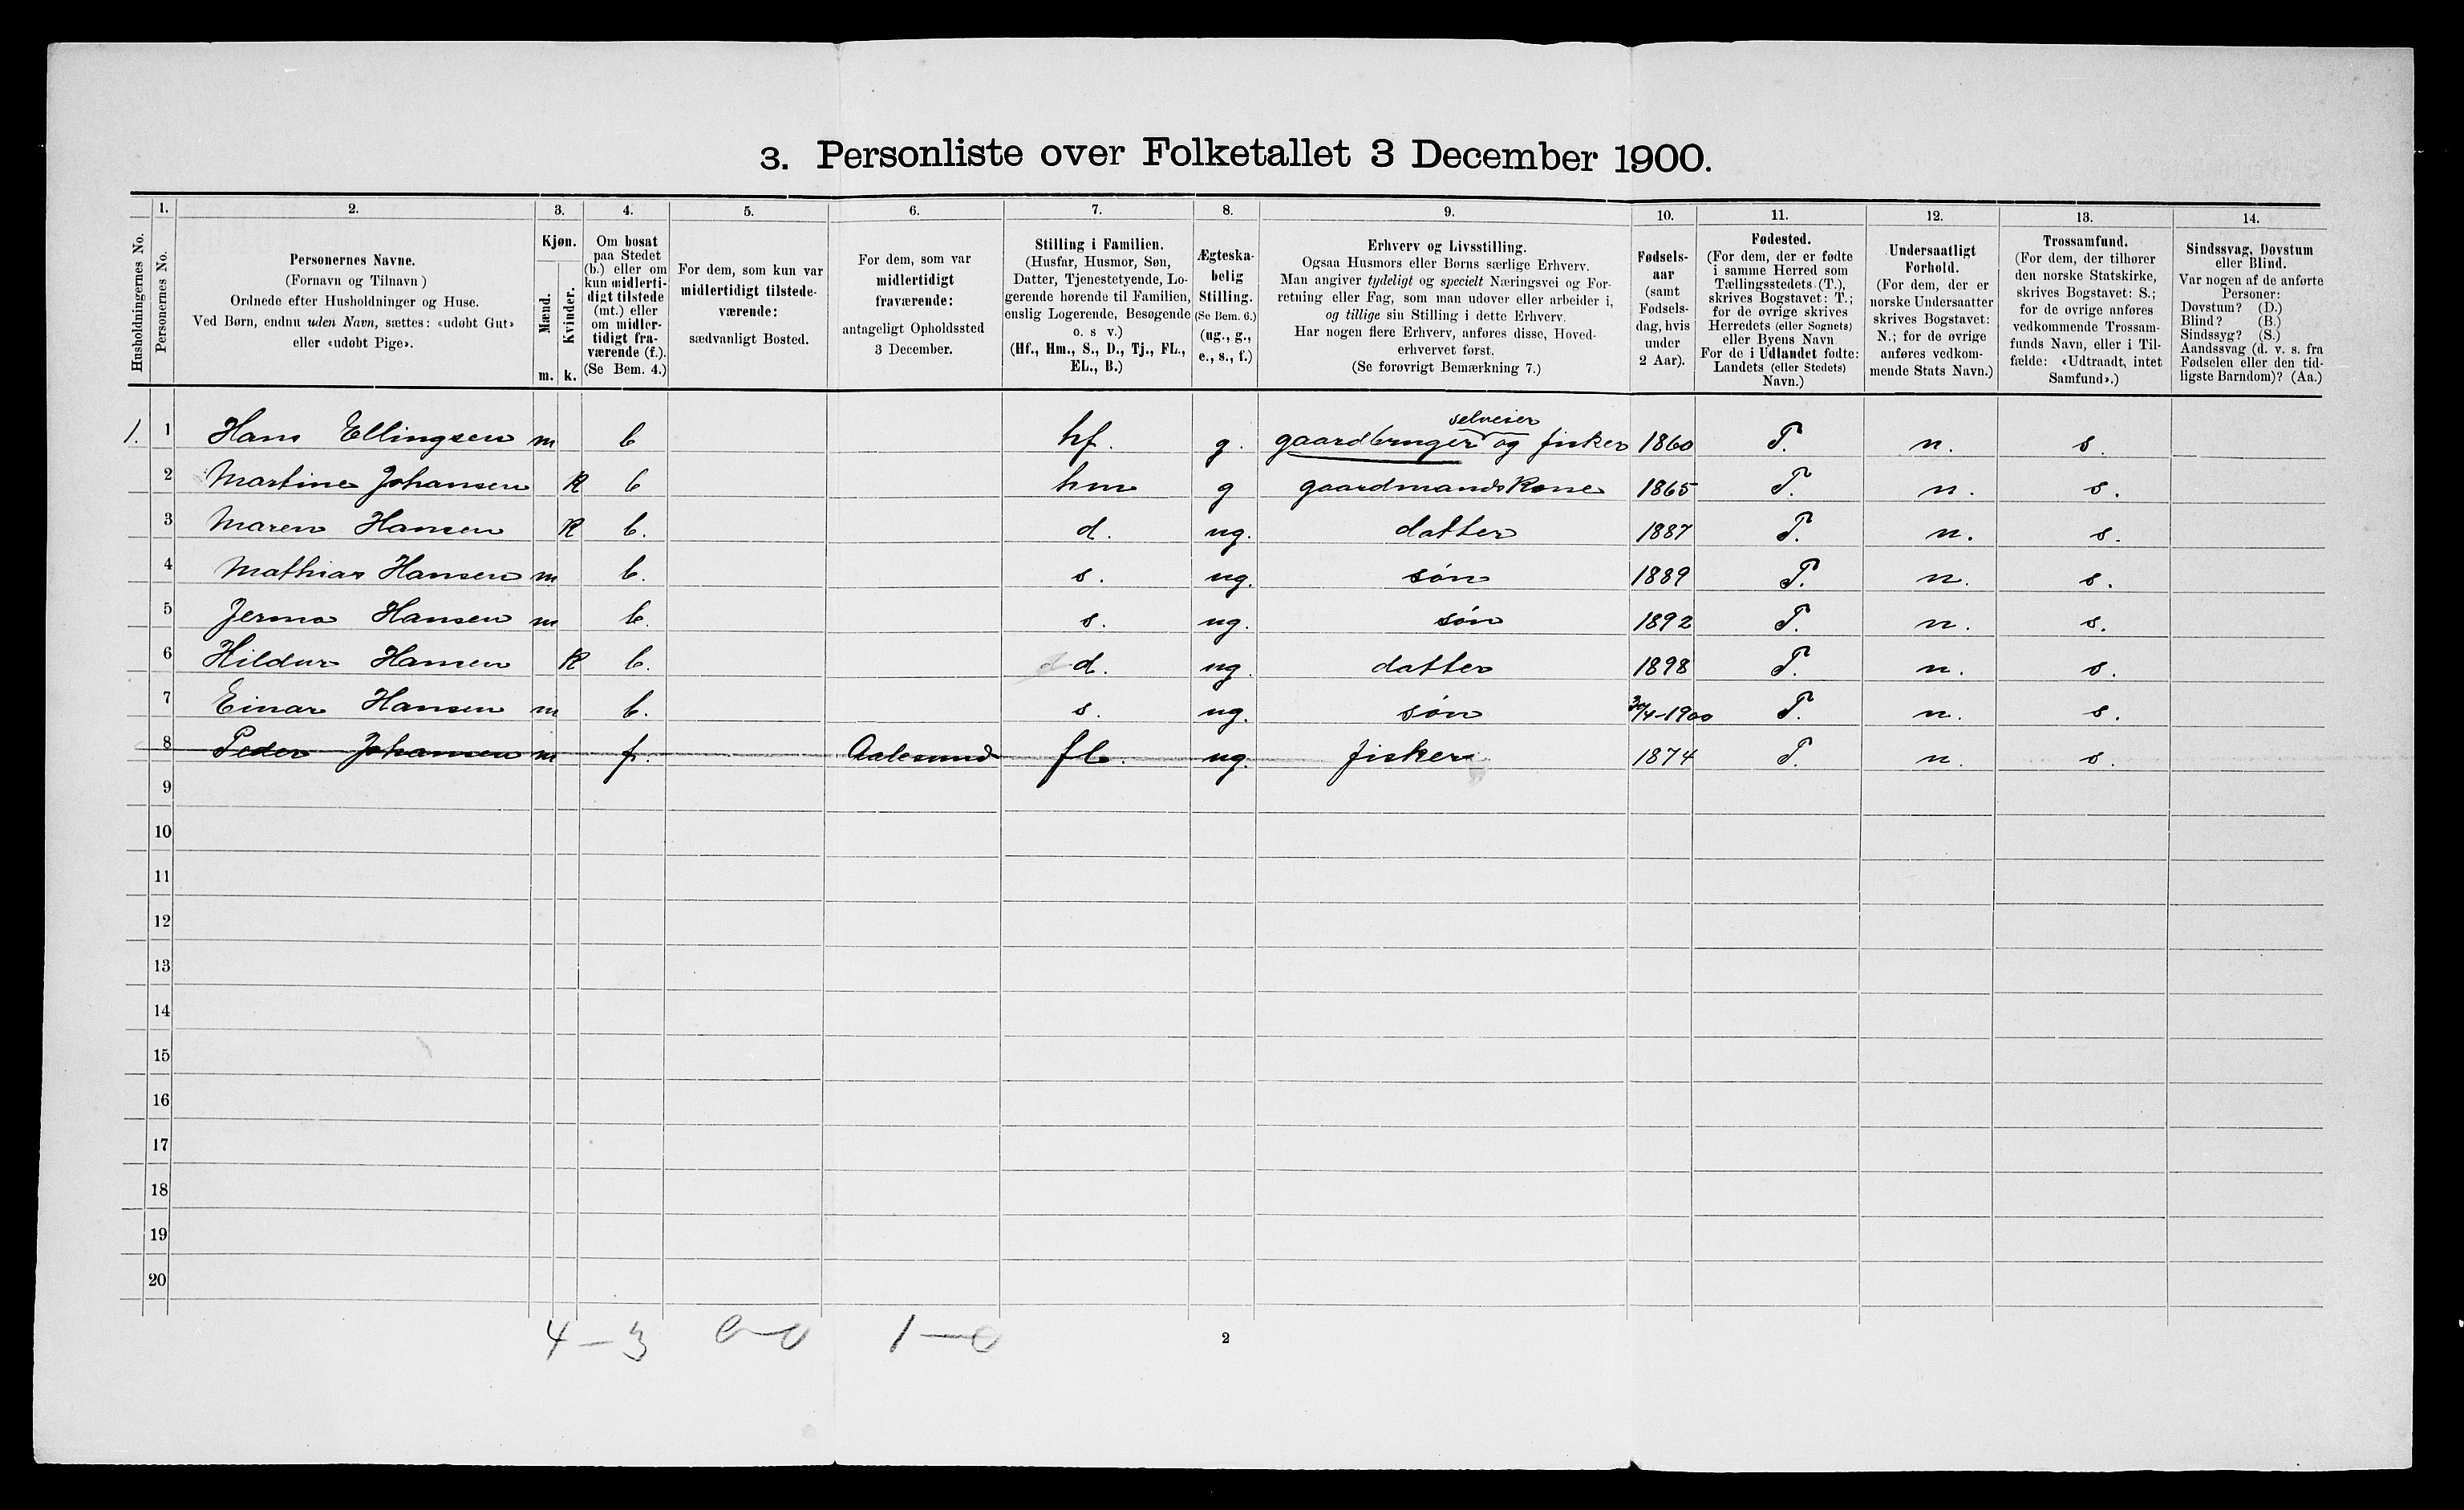 3. Personliste over Folketallet 3 December 1900.
1. 2. 3. 4. 5. 6. 7. 8. 9. 10. 11. 12. 13. 14.
Husholdningernes No.
Personernes No.
Personernes Navne.
(Fornavn og Tilnavn)
Ordnede efter Husholdninger og Huse.
Ved Børn, endnu uden Navn, sættes: «udøbt Gut»
eller «udøbt Pige».
Kjøn.
Mænd.
Kvinder.
m. k.
Om bosat
paa Stedet
(b.) eller om
kun midlerti-
digt tilstede
(mt.) eller
om midler-
tidigt fra-
værende (f.).
(Se Bem. 4.)
For dem, som kun var
midlertidigt tilstede-
værende:
sædvanligt Bosted.
For dem, som var
midlertidigt
fraværende:
antageligt Opholdssted
3 December.
Stilling i Familien.
(Husfar, Husmor, Søn,
Datter, Tjenestetyende, Lo-
gerende hørende til Familien,
enslig Logerende, Besøgende
o. s v.)
(Hf., Hm., S., D., Tj., FL.,
EL., B.)
Ægteska-
belig
Stilling.
(Se Bem. 6.)
(ug., g.,
e., s., f.)
Erhverv og Livsstilling.
Ogsaa Husmors eller Børns særlige Erhverv.
Man angiver tydeligt og specielt Næringsvei og For-
retning eller Fag, som man udøver eller arbeider i,
og tillige sin Stilling i dette Erhverv.
Har nogen flere Erhverv, anføres disse, Hoved-
erhvervet først.
(Se forøvrigt Bemærkning 7.)
Fødsels-
aar
(samt
Fødsels-
dag, hvis
under
2 Aar).
Fødested.
(For dem, der er fødte
i samme Herred som
Tællingsstedets (T.),
skrives Bogstavet: T.;
for de øvrige skrives
Herredets (eller Sognets)
eller Byens Navn
For de i Udlandet fødte:
Landets (eller Stedets)
Navn.)
Undersaatligt
Forhold.
(For dem, der er
norske Undersaatter
skrives Bogstavet:
N.; for de øvrige
anføres vedkom-
mende Stats Navn.)
Trossamfund.
(For dem, der tilhører
den norske Statskirke,
skrives Bogstavet: S.;
for de øvrige anføres
vedkommende Trossam-
funds Navn, eller i Til-
fælde: «Udtraadt, intet
Samfund».)
Sindssvag, Døvstum
eller Blind.
Var nogen af de anførte
Personer:
Døvstum? (D.)
Blind? (B.)
Sindssyg? (S.)
Aandssvag (d. v. s. fra
Fødselen eller den tid-
ligste Barndom)? (Aa.)
selveier
1. 1 Hans Ellingsen m b hf. g. gaardbruger og fisker 1860 T. n. s.
2 Martine Johansen k b hm g gaardmandskone 1865 T. n. s.
3 Maren Hansen k b. d. ug. datter 1887 T. n. s.
4 Mathias Hansen m b. s. ug. søn 1889 T. n. s.
5 Jermo Hansen m b. s. ug. søn 1892 T. n. s.
6 Hildur Hansen k b. d d. ug. datter 1898 T. n. s.
7 Einar Hansen m b. s. ug. søn 30/4-1900 T. n. s.
8 Peder Johansen m f. Aalesund fl. ug. fisker 1874 T. n. s.
9
10
11
12
13
14
15
16
17
18
19
20
4 - 3 0-0 1-0
2